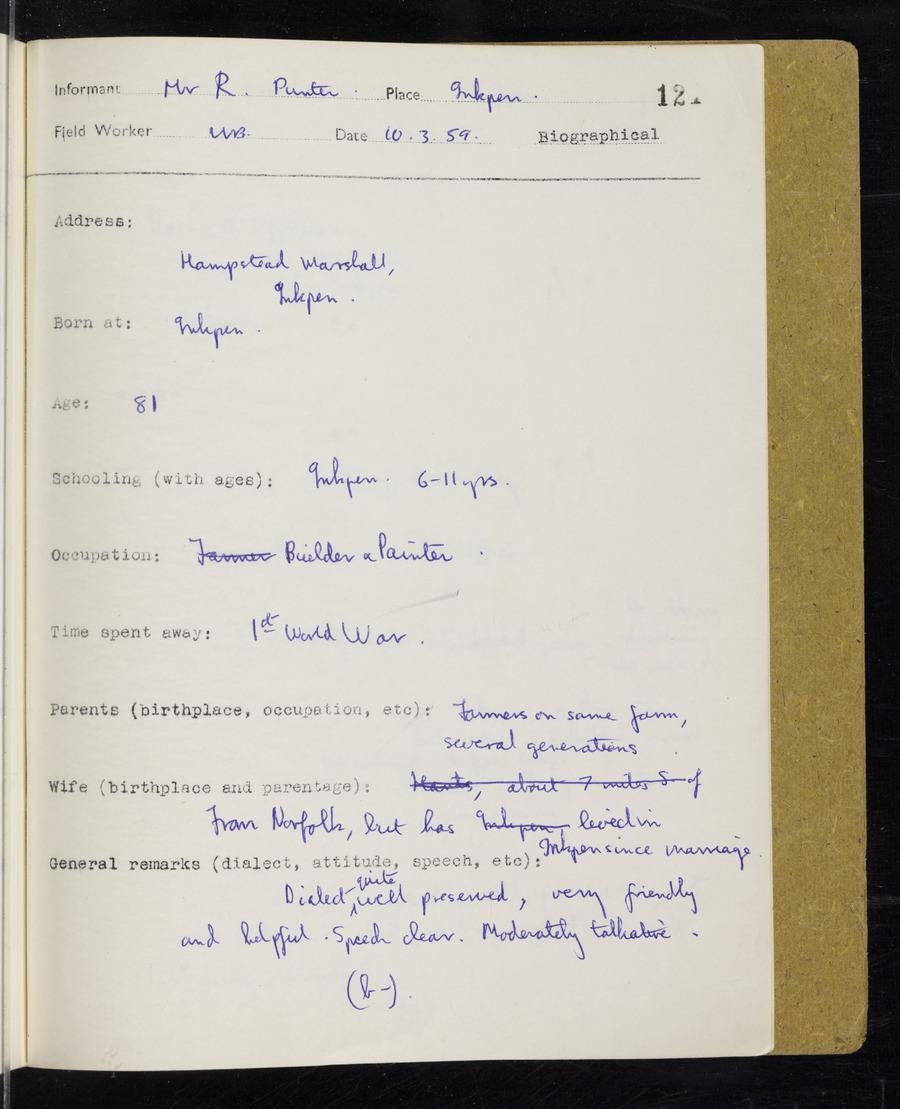 Informant Mr R. Punter. Place Inkpen. 121
Field Worker WB. Date 10.3.59. Biographical
Address:
Hampstead Marshall,
Inkpen.
Born at: Inkpen.
Age: 81
Schooling (with ages): Inkpen. 6-11 yrs.
Occupation: Farmer Builder & Painter.
Time spent away: 1st World War.
Parents (birthplace, occupation, etc): Farmers on same farm,
several generations.
Wife (birthplace and parentage): Hants, about 7 miles S of
From Norfolk, but has Inkpen, lived in
Inkpen since marriage.
General remarks (dialect, attitude, speech, etc):
Dialect quite well preserved, very friendly
and helpful. Speech clear. Moderately talkative.
(b-).